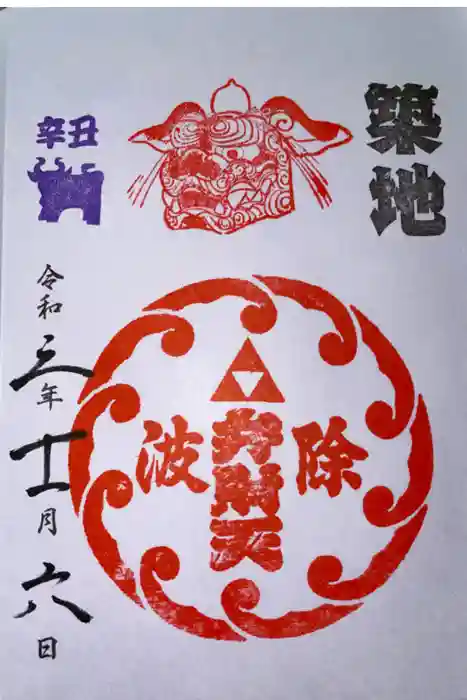 築地
波除
財天
辛丑
令和三年十一月六日